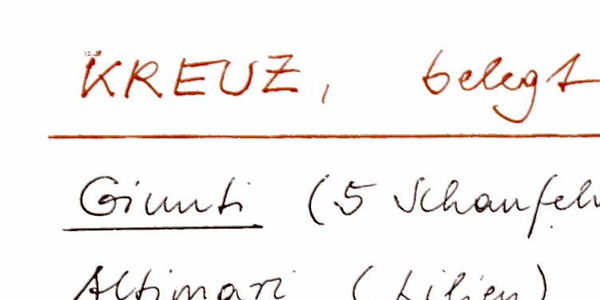 KREUZ, belegt
Giunti (5 Schaufeln
Altimari (Lilien)